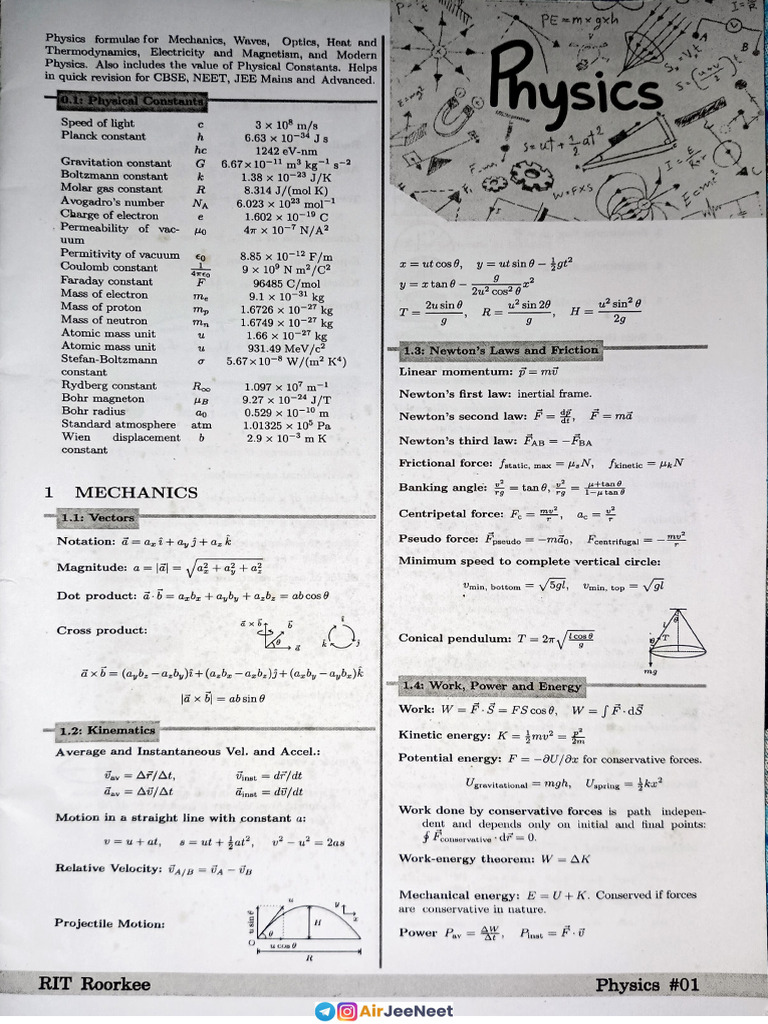 Physics formulae for Mechanics, Waves, Optics, Heat and
Thermodynamics, Electricity and Magnetism, and Modern
Physics. Also includes the value of Physical Constants. Helps
in quick revision for CBSE, NEET, JEE Mains and Advanced.
0.1: Physical Constants
Speed of light c 3 × 10⁸ m/s
Planck constant h 6.63 × 10⁻³⁴ J s
hc 1242 eV-nm
Gravitation constant G 6.67×10⁻¹¹ m³ kg⁻¹ s⁻²
Boltzmann constant k 1.38 × 10⁻²³ J/K
Molar gas constant R 8.314 J/(mol K)
Avogadro's number N_A 6.023 × 10²³ mol⁻¹
Charge of electron e 1.602 × 10⁻¹⁹ C
Permeability of vac- μ₀ 4π × 10⁻⁷ N/A²
uum
Permitivity of vacuum ε₀ 8.85 × 10⁻¹² F/m
Coulomb constant 1/(4πε₀) 9 × 10⁹ N m²/C²
Faraday constant F 96485 C/mol
Mass of electron mₑ 9.1 × 10⁻³¹ kg
Mass of proton mₚ 1.6726 × 10⁻²⁷ kg
Mass of neutron mₙ 1.6749 × 10⁻²⁷ kg
Atomic mass unit u 1.66 × 10⁻²⁷ kg
Atomic mass unit u 931.49 MeV/c²
Stefan-Boltzmann σ 5.67×10⁻⁸ W/(m² K⁴)
constant
Rydberg constant R∞ 1.097 × 10⁷ m⁻¹
Bohr magneton μ_B 9.27 × 10⁻²⁴ J/T
Bohr radius a₀ 0.529 × 10⁻¹⁰ m
Standard atmosphere atm 1.01325 × 10⁵ Pa
Wien displacement b 2.9 × 10⁻³ m K
constant
1 MECHANICS
1.1: Vectors
Notation: a⃗ = aₓ î + a_y ĵ + a_z k̂
Magnitude: a = |a⃗| = √(aₓ² + a_y² + a_z²)
Dot product: a⃗ · b⃗ = aₓbₓ + a_yb_y + a_zb_z = ab cos θ
Cross product: a⃗ × b⃗ b⃗ θ a⃗ î ĵ k̂
a⃗ × b⃗ = (a_yb_z − a_zb_y)î + (a_zbₓ − aₓb_z)ĵ + (aₓb_y − a_ybₓ)k̂
|a⃗ × b⃗| = ab sin θ
1.2: Kinematics
Average and Instantaneous Vel. and Accel.:
v⃗_av = Δr⃗/Δt, v⃗_inst = dr⃗/dt
a⃗_av = Δv⃗/Δt a⃗_inst = dv⃗/dt
Motion in a straight line with constant a:
v = u + at, s = ut + ½at², v² − u² = 2as
Relative Velocity: v⃗_A/B = v⃗_A − v⃗_B
Projectile Motion: u sin θ u y x H O θ u cos θ R
Physics
PE = m × g × h
s = ut + ½ at²
W = F × S
E = mc²
x = ut cos θ, y = ut sin θ − ½gt²
y = x tan θ − g/(2u² cos² θ) x²
T = 2u sin θ/g, R = u² sin 2θ/g, H = u² sin² θ/2g
1.3: Newton's Laws and Friction
Linear momentum: p⃗ = mv⃗
Newton's first law: inertial frame.
Newton's second law: F⃗ = dp⃗/dt, F⃗ = ma⃗
Newton's third law: F⃗_AB = −F⃗_BA
Frictional force: f_static, max = μₛN, f_kinetic = μₖN
Banking angle: v²/rg = tan θ, v²/rg = (μ+tan θ)/(1−μ tan θ)
Centripetal force: F_c = mv²/r, a_c = v²/r
Pseudo force: F⃗_pseudo = −ma⃗₀, F_centrifugal = −mv²/r
Minimum speed to complete vertical circle:
v_min, bottom = √5gl, v_min, top = √gl
Conical pendulum: T = 2π√(l cos θ/g) θ l θ T mg
1.4: Work, Power and Energy
Work: W = F⃗ · S⃗ = FS cos θ, W = ∫ F⃗ · dS⃗
Kinetic energy: K = ½mv² = p²/2m
Potential energy: F = −∂U/∂x for conservative forces.
U_gravitational = mgh, U_spring = ½kx²
Work done by conservative forces is path indepen-
dent and depends only on initial and final points:
∮ F⃗_conservative · dr⃗ = 0.
Work-energy theorem: W = ΔK
Mechanical energy: E = U + K. Conserved if forces
are conservative in nature.
Power P_av = ΔW/Δt, P_inst = F⃗ · v⃗
RIT Roorkee Physics #01
AirJeeNeet